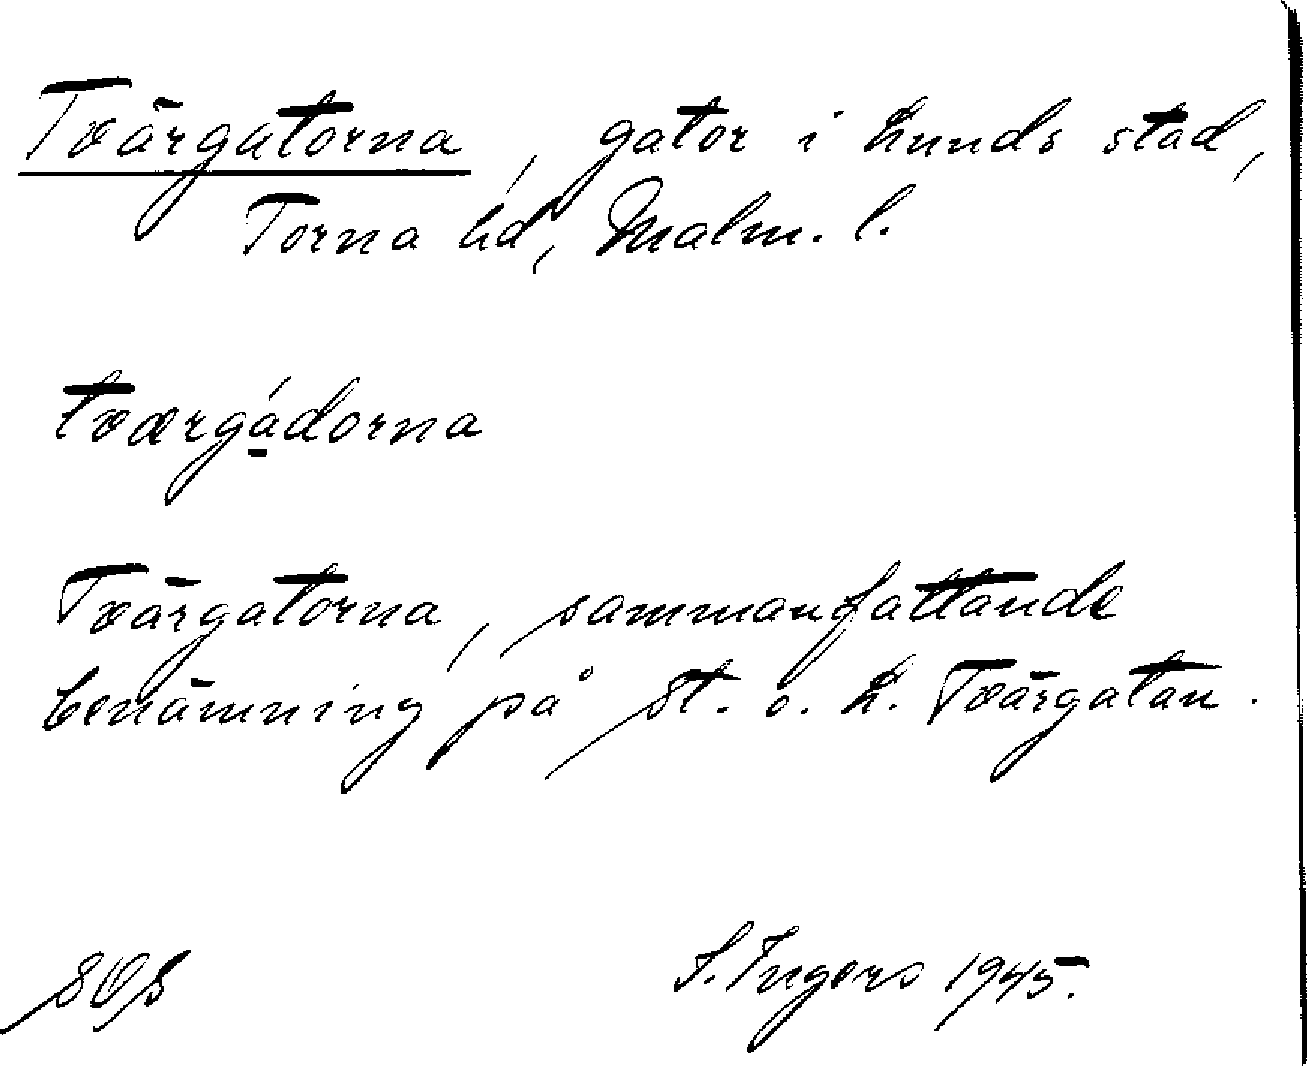 Tvärgatorna, gator i Lunds stad,
Torna hd, Malm. l.
tværgá̱dorna
Tvärgatorna, sammanfattande
benämning på St. o. L. Tvärgatan.
Ingers 1945.